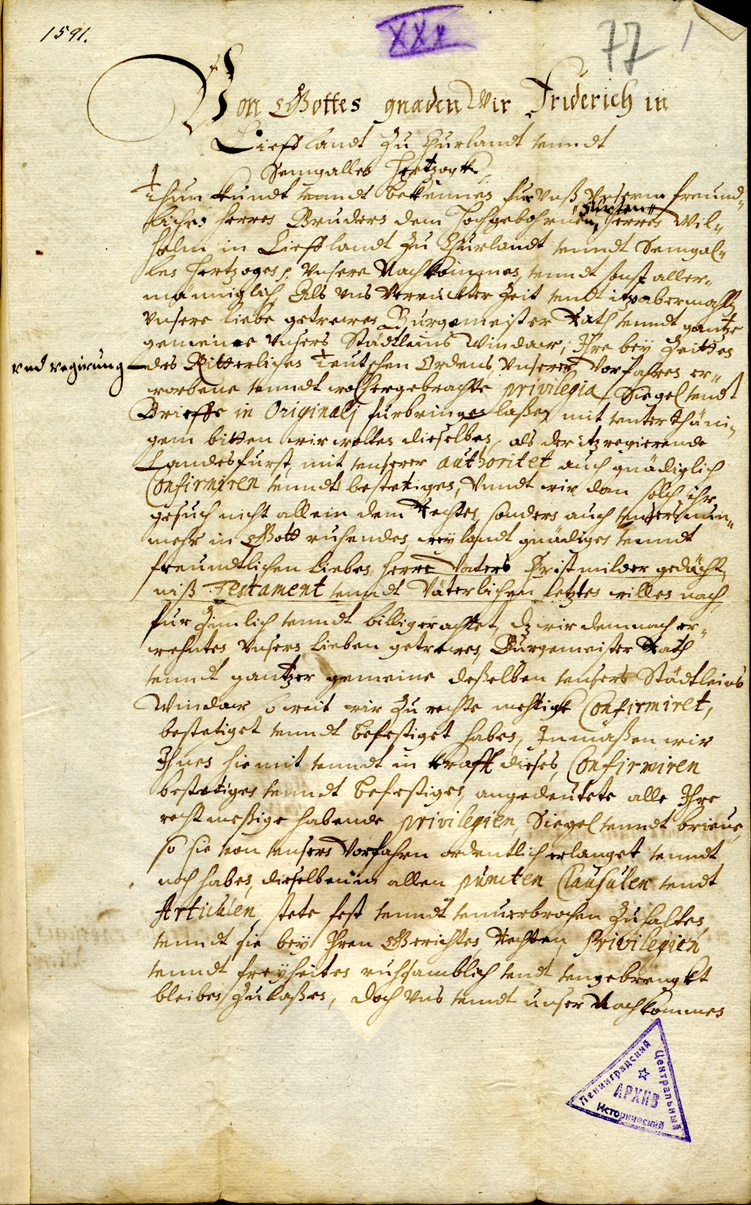 1591.
XXX
77
1
Von Gottes gnaden Wir Friderich in
Liefflandt zu Churlandt vnndt
Semgallen Hertzogk,
Thun kundt vnndt bekennen für vnß vnsern freund-
lichen Herrn Brudern dem Hochgebornen Fürsten Herrn Wil-
helm in Liefflandt zu Churlandt vnndt Semgal-
len Hertzogen, vnsere Nachkommen, vnndt sonst aller-
männiglich, Als vns verruckter Zeit vndt itzo abermahl
vnsere liebe getrewe Burgemeister Rath vnndt gantze
gemeine vnsers Städtleins Windaw, Ihre bey Zeitten
vnd regirung
des Ritterlichen Teutschen Ordens vnserer Vorfahren er-
worbene vnndt wolhergebrachte privilegia, Siegel vndt
Brieffe in Originali fürbringen laßen, mit vnterthäni-
gem bitten wir wolten dieselben, als der itz regierende
Landesfürst, mit vnserer authoritet auch gnädiglich
Confirmiren vnndt bestetigen, Vnndt wir dan solch ihr
gesuch nicht allein dem Rechten, sonders auch vnsers nun-
mehr in Gott ruhenden weylandt gnädigen vnndt
freundtlichen lieben Herrn Vaters Christmilder gedächt-
niß Testament vnndt Väterlichen letzten willen nach
für Zimlich vnndt billig erachtet, dz wir demnach er-
wehnten vnsern lieben getrewen Burgemeister Rath
vnndt gantzer gemeine deßelben vnsers Städtleins
Windaw so weit wir zu rechte mechtigk Confirmiret,
bestetiget vnndt befestiget haben, Inmaßen wir
Ihnen hiemit vnndt in krafft dieses, Confirmiren
bestetigen vnndt befestigen angedeutete alle Ihre
rechtmeßige habende privilegien, Siegel vnndt brieue,
so sie von vnsern Vorfahren ordentlich erlanget vnndt
noch haben, dieselben in allen puncten Clausulen vndt
Articulen, stete fest vnndt vnuerbrochen zu halten
vnndt sie bey Ihren Gerichten Rechten Privilegien
vnndt freyheiten ruhsamblich vndt vngedrengkt
bleiben zu laßen, Doch vns vnndt unser Nachkommen
Ленинградский
Центральный
Исторический
АРХИВ